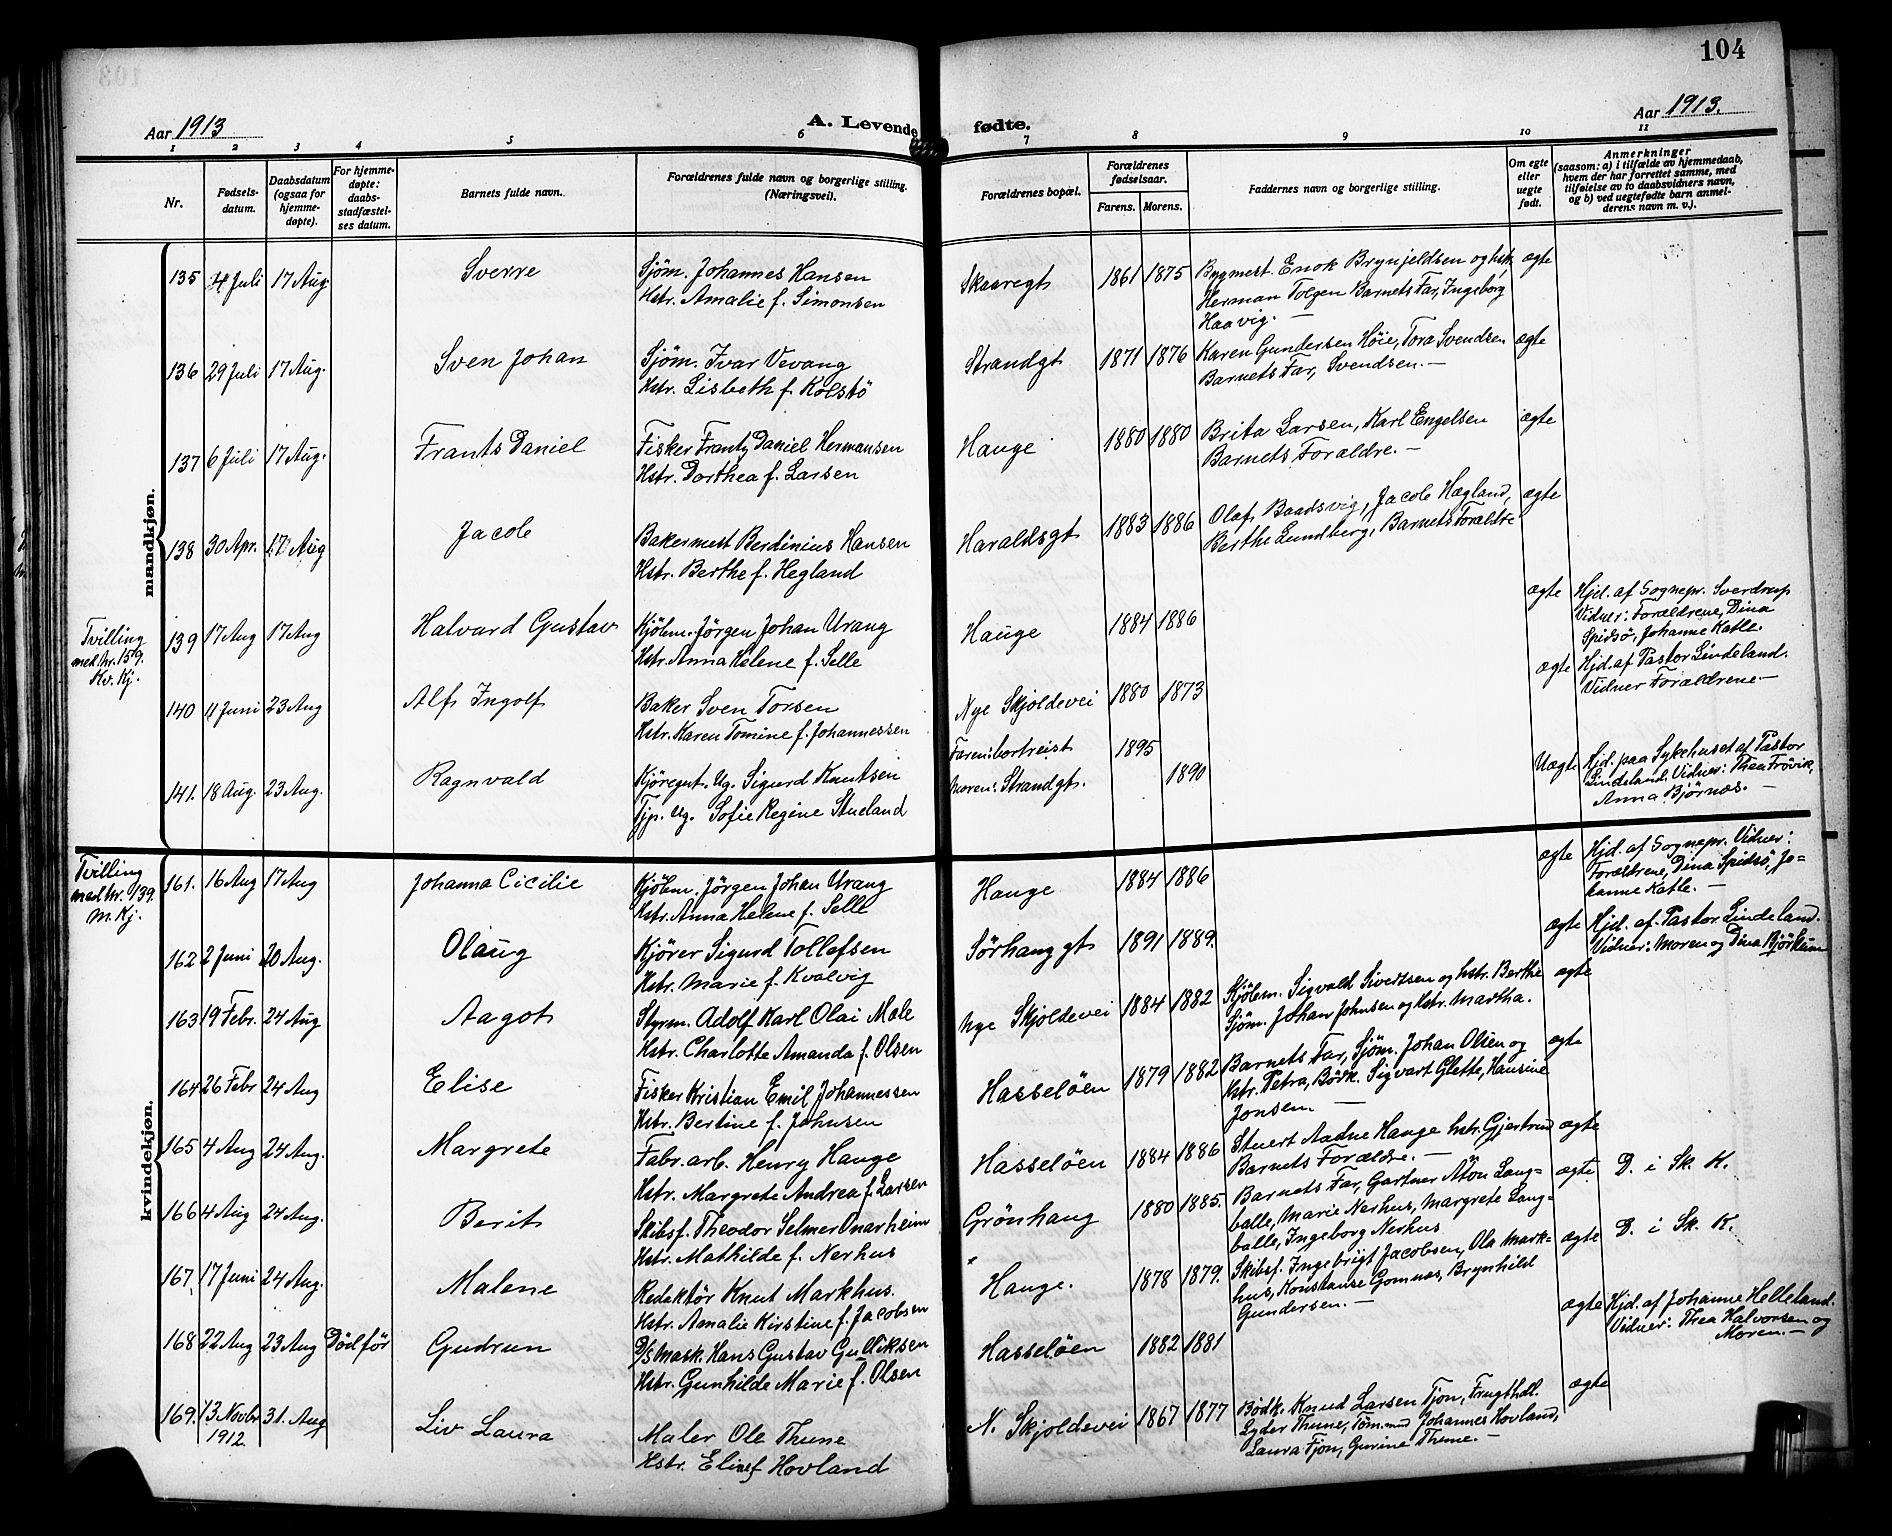 104
Aar 1913
A. Levende fødte.
Aar 1913.
1 2 3 4 5 6 7 8 9 10 11
Nr.
Fødsels-
datum.
Daabsdatum
(ogsaa for
hjemme-
døpte).
For hjemme-
døpte:
daabs-
stadfæstel-
ses datum.
Barnets fulde navn.
Forældrenes fulde navn og borgerlige stilling.
(Næringsvei).
Forældrenes bopæl.
Forældrenes
fødselsaar.
Farens. Morens.
Faddernes navn og borgerlige stilling.
Om egte
eller
uegte
født.
Anmerkninger
(saasom: a) i tilfælde av hjemmedaab,
hvem der har forrettet samme, med
tilføielse av to daabsvidners navn,
og b) ved uegtefødte barn anmel-
derens navn m. v.).
mandkjøn.
135 4 Juli 17 Aug. Sverre
Sjøm. Johannes Hansen
Hstr. Amalie f. Simonsen
Skaaregt 1861 1875
Bygmest. Enok Brynjeldsen og hstr,
Herman Tolgen Barnets Far, Ingeborg
Haavig. —
ægte
136 29 Juli 17 Aug. Sven Johan
Sjøm. Ivar Vevang
Hstr. Lisbeth f. Kolstö
Strandgt 1871 1876
Karen Gundersen Höie, Tora Svendsen
Barnets Far, Svendsen. —
ægte
137 6 Juli 17 Aug. Frants Daniel
Fisker Frantz Daniel Hermansen
Hstr. Dorthea f. Larsen
Hauge 1880 1880
Brita Larsen, Karl Engelsen
Barnets Forældre. —
ægte
138 30 Apr. 17 Aug Jacob
Bakermest Berdinius Hansen
Hstr. Berthe f. Hegland
Haraldsgt 1883 1886
Olaf Baadsvig, Jacob Hægland,
Berthe Lundberg, Barnets Forældre
ægte
Tvilling
med Nr. 159.
Kv. Kj.
139 17 Aug 17 Aug Halvard Gustav
Kjøbm. Jörgen Johan Urang
Hstr. Anna Helene f. Selle
Hauge 1884 1886
ægte
Hjd. af Sognepr. Sverdrup
Vidner: Forældrene, Dina
Spidsö, Johanne Katle.
140 11 Juni 23 Aug Alf Ingolf
Baker Sven Torsen
Hstr. Karen Tomine f. Johannessen
Nye Skjoldevei 1880 1873
ægte
Hjd. af Pastor Lindeland.
Vidner Forældrene —
141. 18 Aug. 23 Aug. Ragnvald
Kjöregut. Ug. Sigurd Knutsen
Tjp. Ug. Sofie Regine Stueland
Faren: bortreist 1895
Moren: Strandgt. 1890
Uægte
Hjd. paa Sykehuset af Pastor
Lindeland. Vidner: Thea Frövik,
Anna Bjørnæs. —
kvindekjøn.
Tvilling
med Nr. 139.
M. Kj.
161. 16 Aug 17 Aug Johanna Cicilie
Kjøbm. Jörgen Johan Urang
Hstr. Anna Helene f. Selle
Hauge 1884 1886
ægte
Hjd. af Sognepr. Vidner:
Forældrene, Dina Spidsö, Jo-
hanne Katle. —
162 2 Juni 20 Aug. Olaug
Kjörer Sigurd Tollefsen
Hstr. Marie f. Kvalvig
Sörhauggt 1891 1889.
ægte
Hjd. af. Pastor Lindeland.
Vidner: Moren og Dina Bjørkum
163 19 Febr. 24 Aug Aagot
Styrm. Adolf Karl Olai Mæle
Hstr. Charlotte Amanda f. Olsen
Nye Skjoldevei 1884 1882
Kjøbm. Sigvald Sivertsen og hstr. Berthe
Sjöm. Johan Johnsen og Hstr. Martha.
ægte
164 26 Febr 24 Aug Elise
Fisker Kristian Emil Johannessen
Hstr. Bertine f. Johnsen
Hasselöen 1879 1882
Barnets Far, Sjöm. Johan Olsen og
Hstr. Petra, Bödk. Sigvart Glette, Hansine
Jonsen. —
ægte
165 4 Aug 24 Aug. Margrete
Fabr. arb. Henry Hauge
Hstr. Margrete Andrea f. Larsen
Hasselöen 1884 1886
Stuert Aadne Hauge hstr. Gjertrud
Barnets Forældre. —
ægte
166 4 Aug 24 Aug. Berit
Skibsf. Theodor Selmer Onarheim
Hstr. Mathilde f. Nerhus
Grönhaug 1880 1885.
Barnets Far, Gartner Aton Lang-
balle, Marie Nerhus, Margrete Lang-
balle, Ingeborg Nerhus
ægte
D. i Sk. K.
167. 17 Juni 24 Aug. Malene
Redaktør Knut Markhus.
Hstr. Amalie Kirstine f. Jacobsen
Hauge. 1878 1879.
Skibsf. Ingebrigt Jacobsen, Ola Mark-
hus, Konstanse Gomnæs, Brynhild
Gundersen. —
ægte
D. i Sk. K.
168 22 Aug 23 Aug Död för Gudrun
D/S Mask. Hans Gustav Gulliksen
Hstr. Gunhilde Marie f. Olsen
Hasselöen 1882 1881
ægte
Hjd. af Johanne Helleland.
Vidner: Thea Halvorsen og
Moren. —
169. 13 Novbr 1912. 31. Aug Liv Laura
Maler Ole Thune
Hstr. Eline f Hovland
N. Skjoldevei 1867 1877
Bödk. Knud Larsen Tjon, Frugthdl.
Lyder Thune, Tömmd Johannes Hovland,
Laura Tjon, Gurine Thune. —
ægte